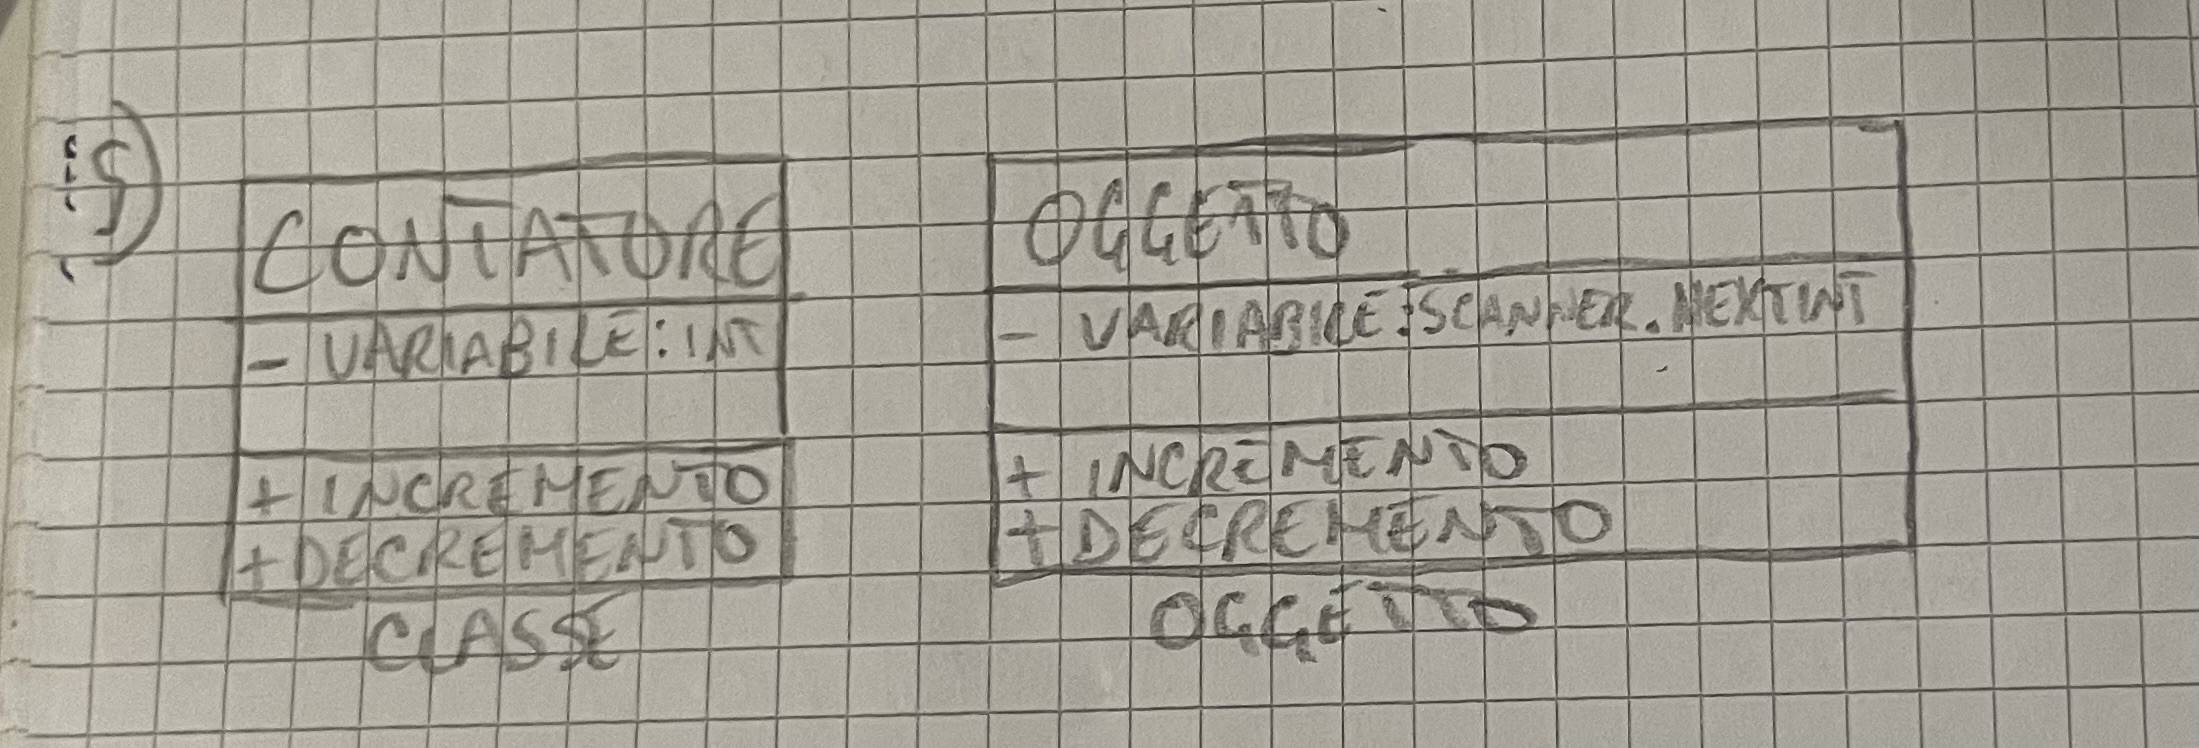 5)
CONTATORE
- VARIABILE: INT
+ INCREMENTO
+ DECREMENTO
CLASSE
OGGETTO
- VARIABILE: SCANNER.NEXTINT
+ INCREMENTO
+ DECREMENTO
OGGETTO